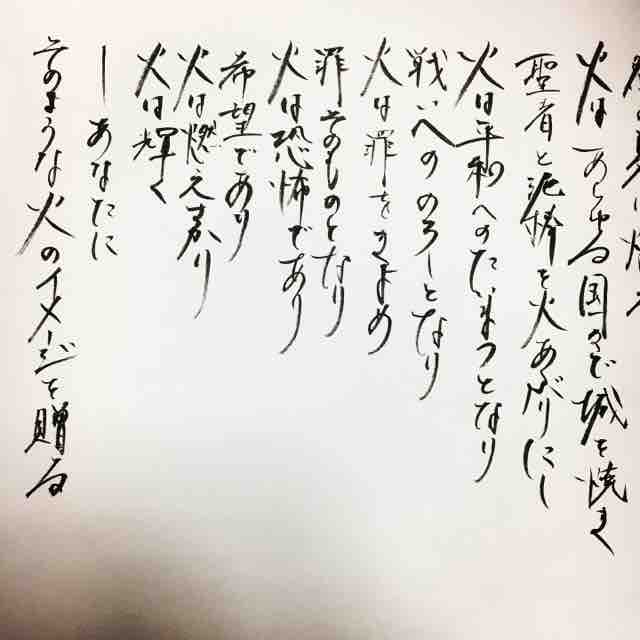 火は あらゆる国々で城を焼き
聖者と泥棒を火あぶりにし
火は平和へのたいまつとなり
戦いへののろしとなり
火は罪をきよめ
罪そのものとなり
火は恐怖であり
希望であり
火は燃えさかり
火は輝く
―あなたに
そのような火のイメージを贈る